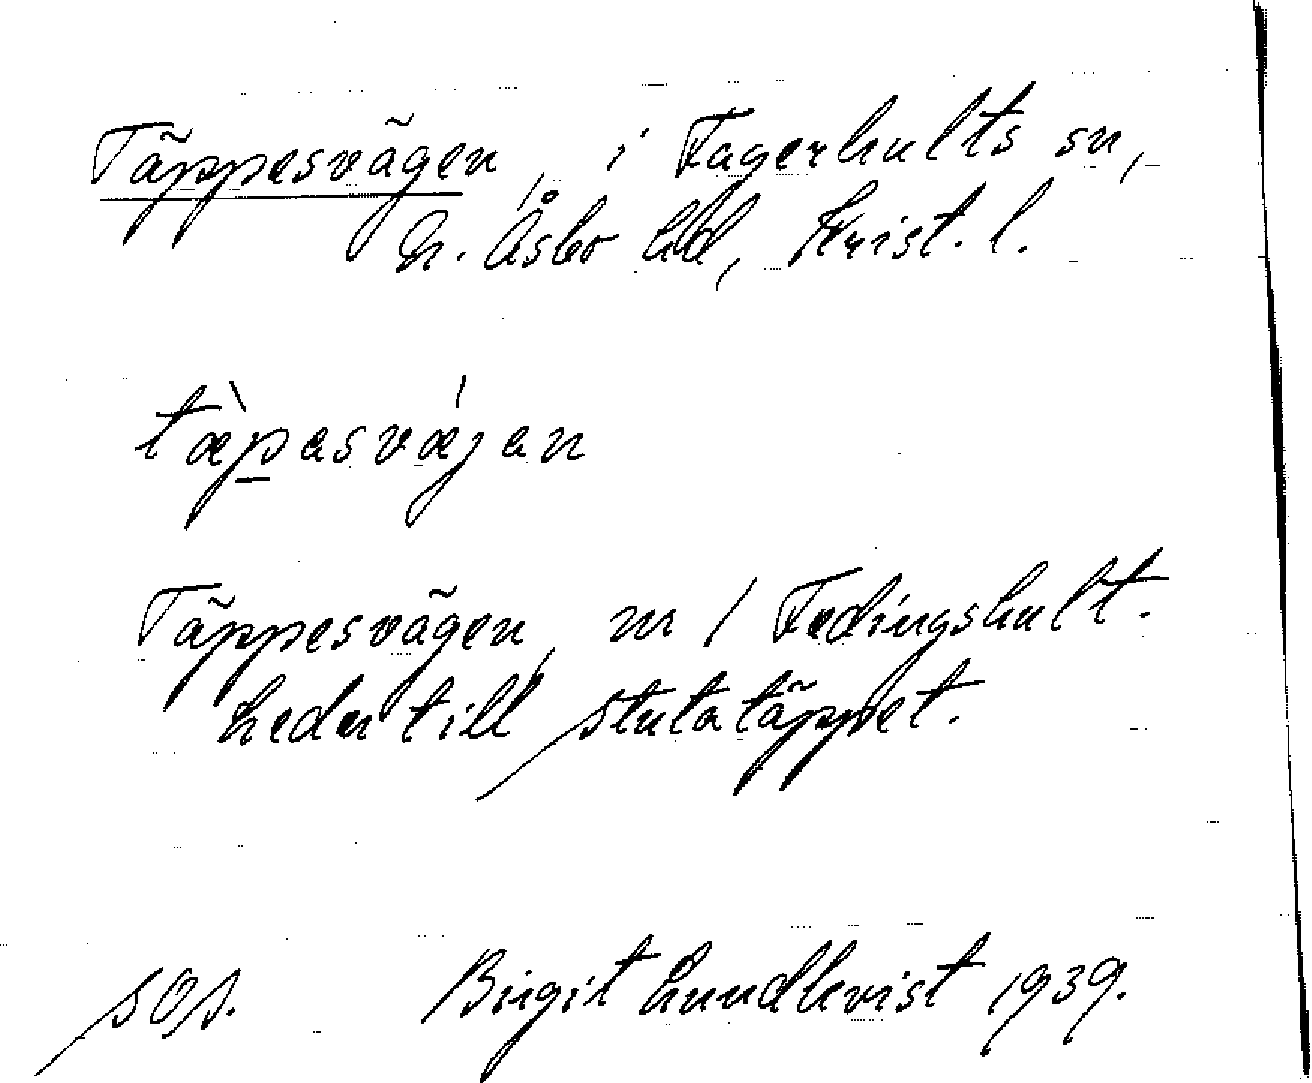 Täppesvägen, i Fagerhults sn,
N. Åsbo hd, Krist. l.
tæ̀p̱asvǽjan
Täppesvägen, m / Fedingshult.
Leder till stutatäppet.
sOs. Birgit Lundkvist 1939.